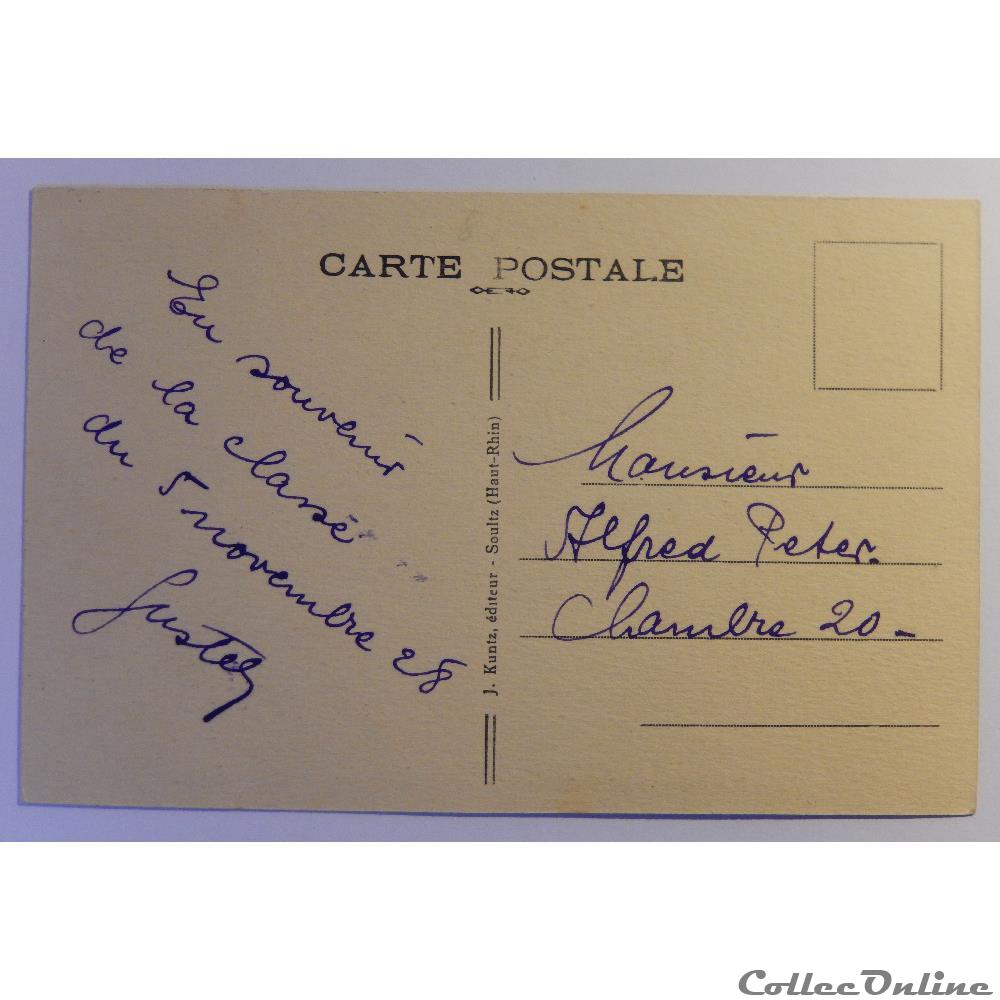 CARTE POSTALE
En souvenir
de la classe
du 5 novembre 28
Gustel
J. Kuntz, éditeur - Soultz (Haut-Rhin)
Monsieur
Alfred Peter.
Chambre 20-
CollecOnline